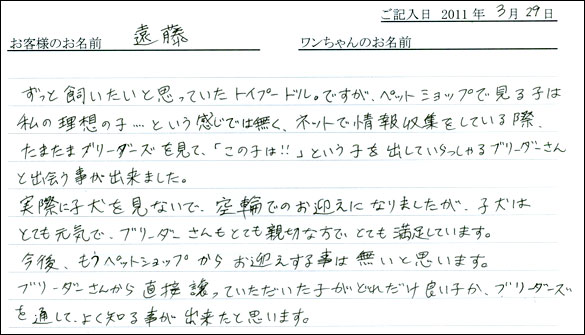 ご記入日 2011 年 3 月 29 日
お客様のお名前 遠藤 ワンちゃんのお名前
ずっと飼いたいと思っていたトイプードル。ですが、ペットショップで見る子は
私の理想の子‥‥という感じでは無く、ネットで情報収集をしている際、
たまたまブリーダーズを見て、「この子は!!」という子を出していらっしゃるブリーダーさん
と出会う事が出来ました。
実際に子犬を見ないで、空輪でのお迎えになりましたが、子犬は
とても元気で、ブリーダーさんもとても親切な方で、とても満足しています。
今後、もうペットショップからお迎えする事は無いと思います。
ブリーダーさんから直接譲っていただいた子がどれだけ良い子か、ブリーダーズ
を通して、よく知る事が出来たと思います。